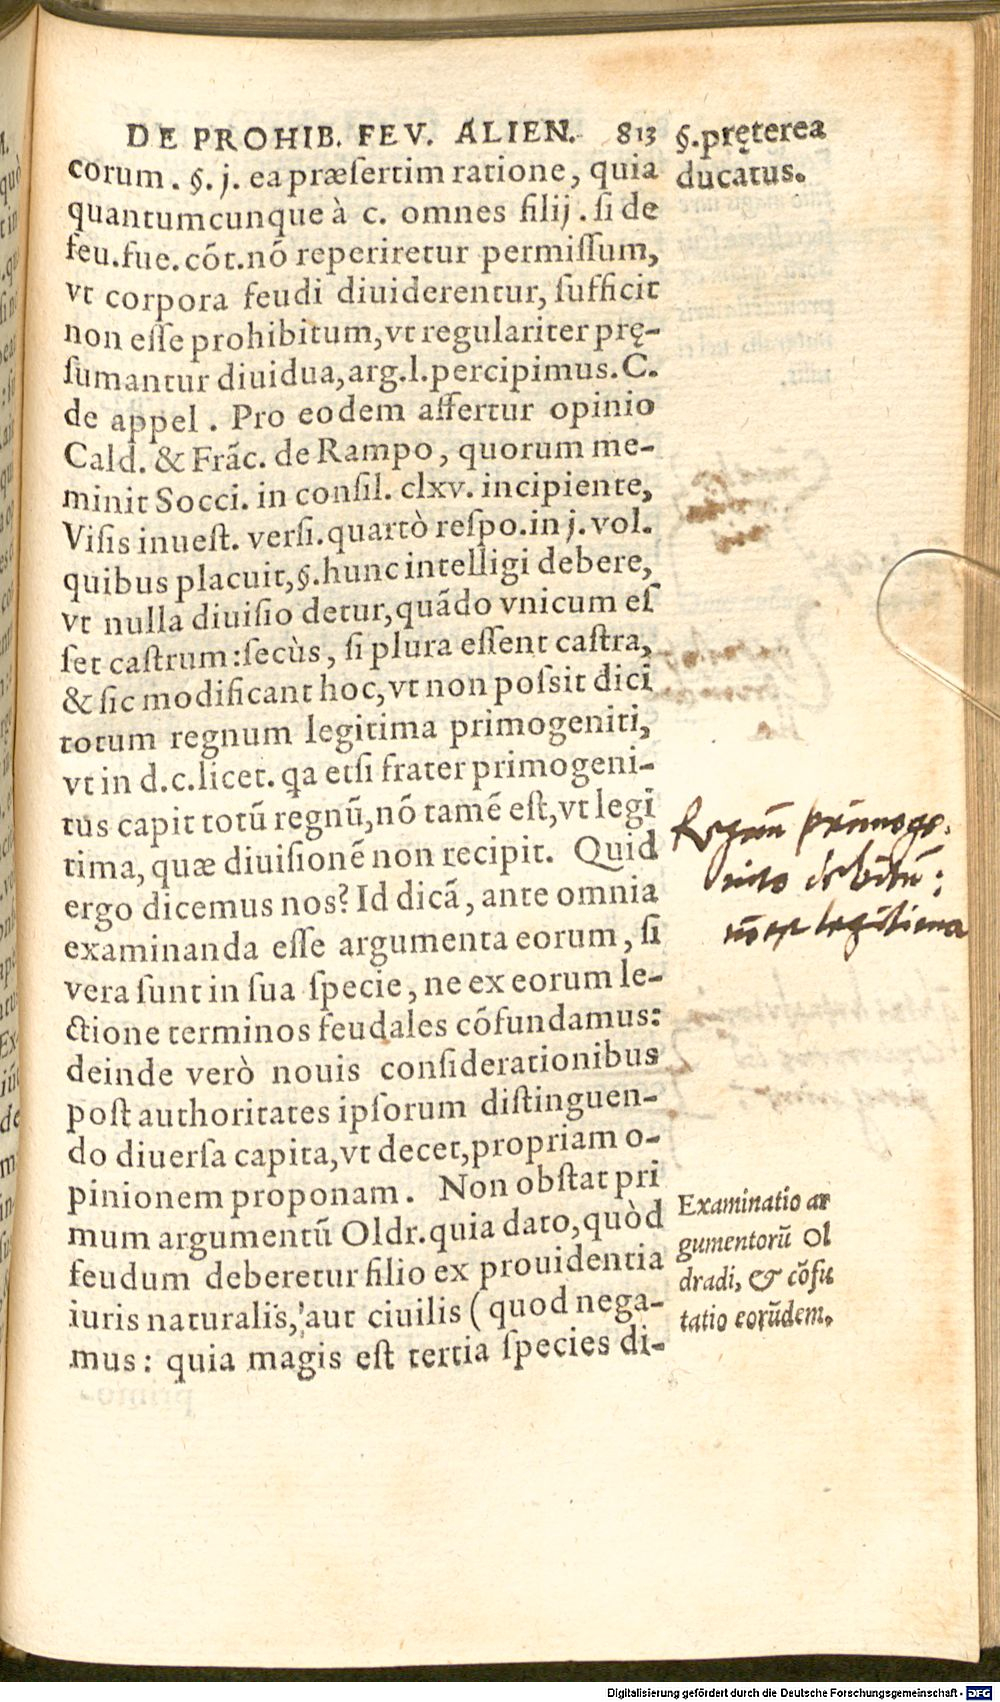 DE PROHIB. FEV. ALIEN. 813
§.pręterea
ducatus.
corum. §. j. ea præsertim ratione, quia
quantumcunque à c. omnes filij. si de
feu.fue.cõt.nõ reperiretur permissum,
vt corpora feudi diuiderentur, sufficit
non esse prohibitum, vt regulariter prę-
sumantur diuidua, arg.l.percipimus.C.
de appel. Pro eodem affertur opinio
Cald. & Frãc. de Rampo, quorum me-
minit Socci. in consil. clxv. incipiente,
Visis inuest. versi.quartò respo.in j.vol.
quibus placuit,§.hunc intelligi debere,
vt nulla diuisio detur, quãdo vnicum es
set castrum: secùs, si plura essent castra,
& sic modificant hoc, vt non possit dici
totum regnum legitima primogeniti,
vt in d.c.licet. qa etsi frater primogeni-
tus capit totũ regnũ, nõ tamẽ est, vt legi
tima, quæ diuisionẽ non recipit. Quid
ergo dicemus nos? Id dicã, ante omnia
examinanda esse argumenta eorum, si
vera sunt in sua specie, ne ex eorum le-
ctione terminos feudales cõfundamus:
deinde verò nouis considerationibus
post authoritates ipsorum distinguen-
do diuersa capita, vt decet, propriam o-
pinionem proponam. Non obstat pri
mum argumentũ Oldr. quia dato, quòd
feudum deberetur filio ex prouidentia
iuris naturalis, aut ciuilis (quod nega-
mus: quia magis est tertia species di-
Regnũ primoge-
nito debitũ:
nõ est legitima
Examinatio ar
gumentorũ Ol
dradi, & cõfu
tatio eorũdem.
Digitalisierung gefördert durch die Deutsche Forschungsgemeinschaft - DFG